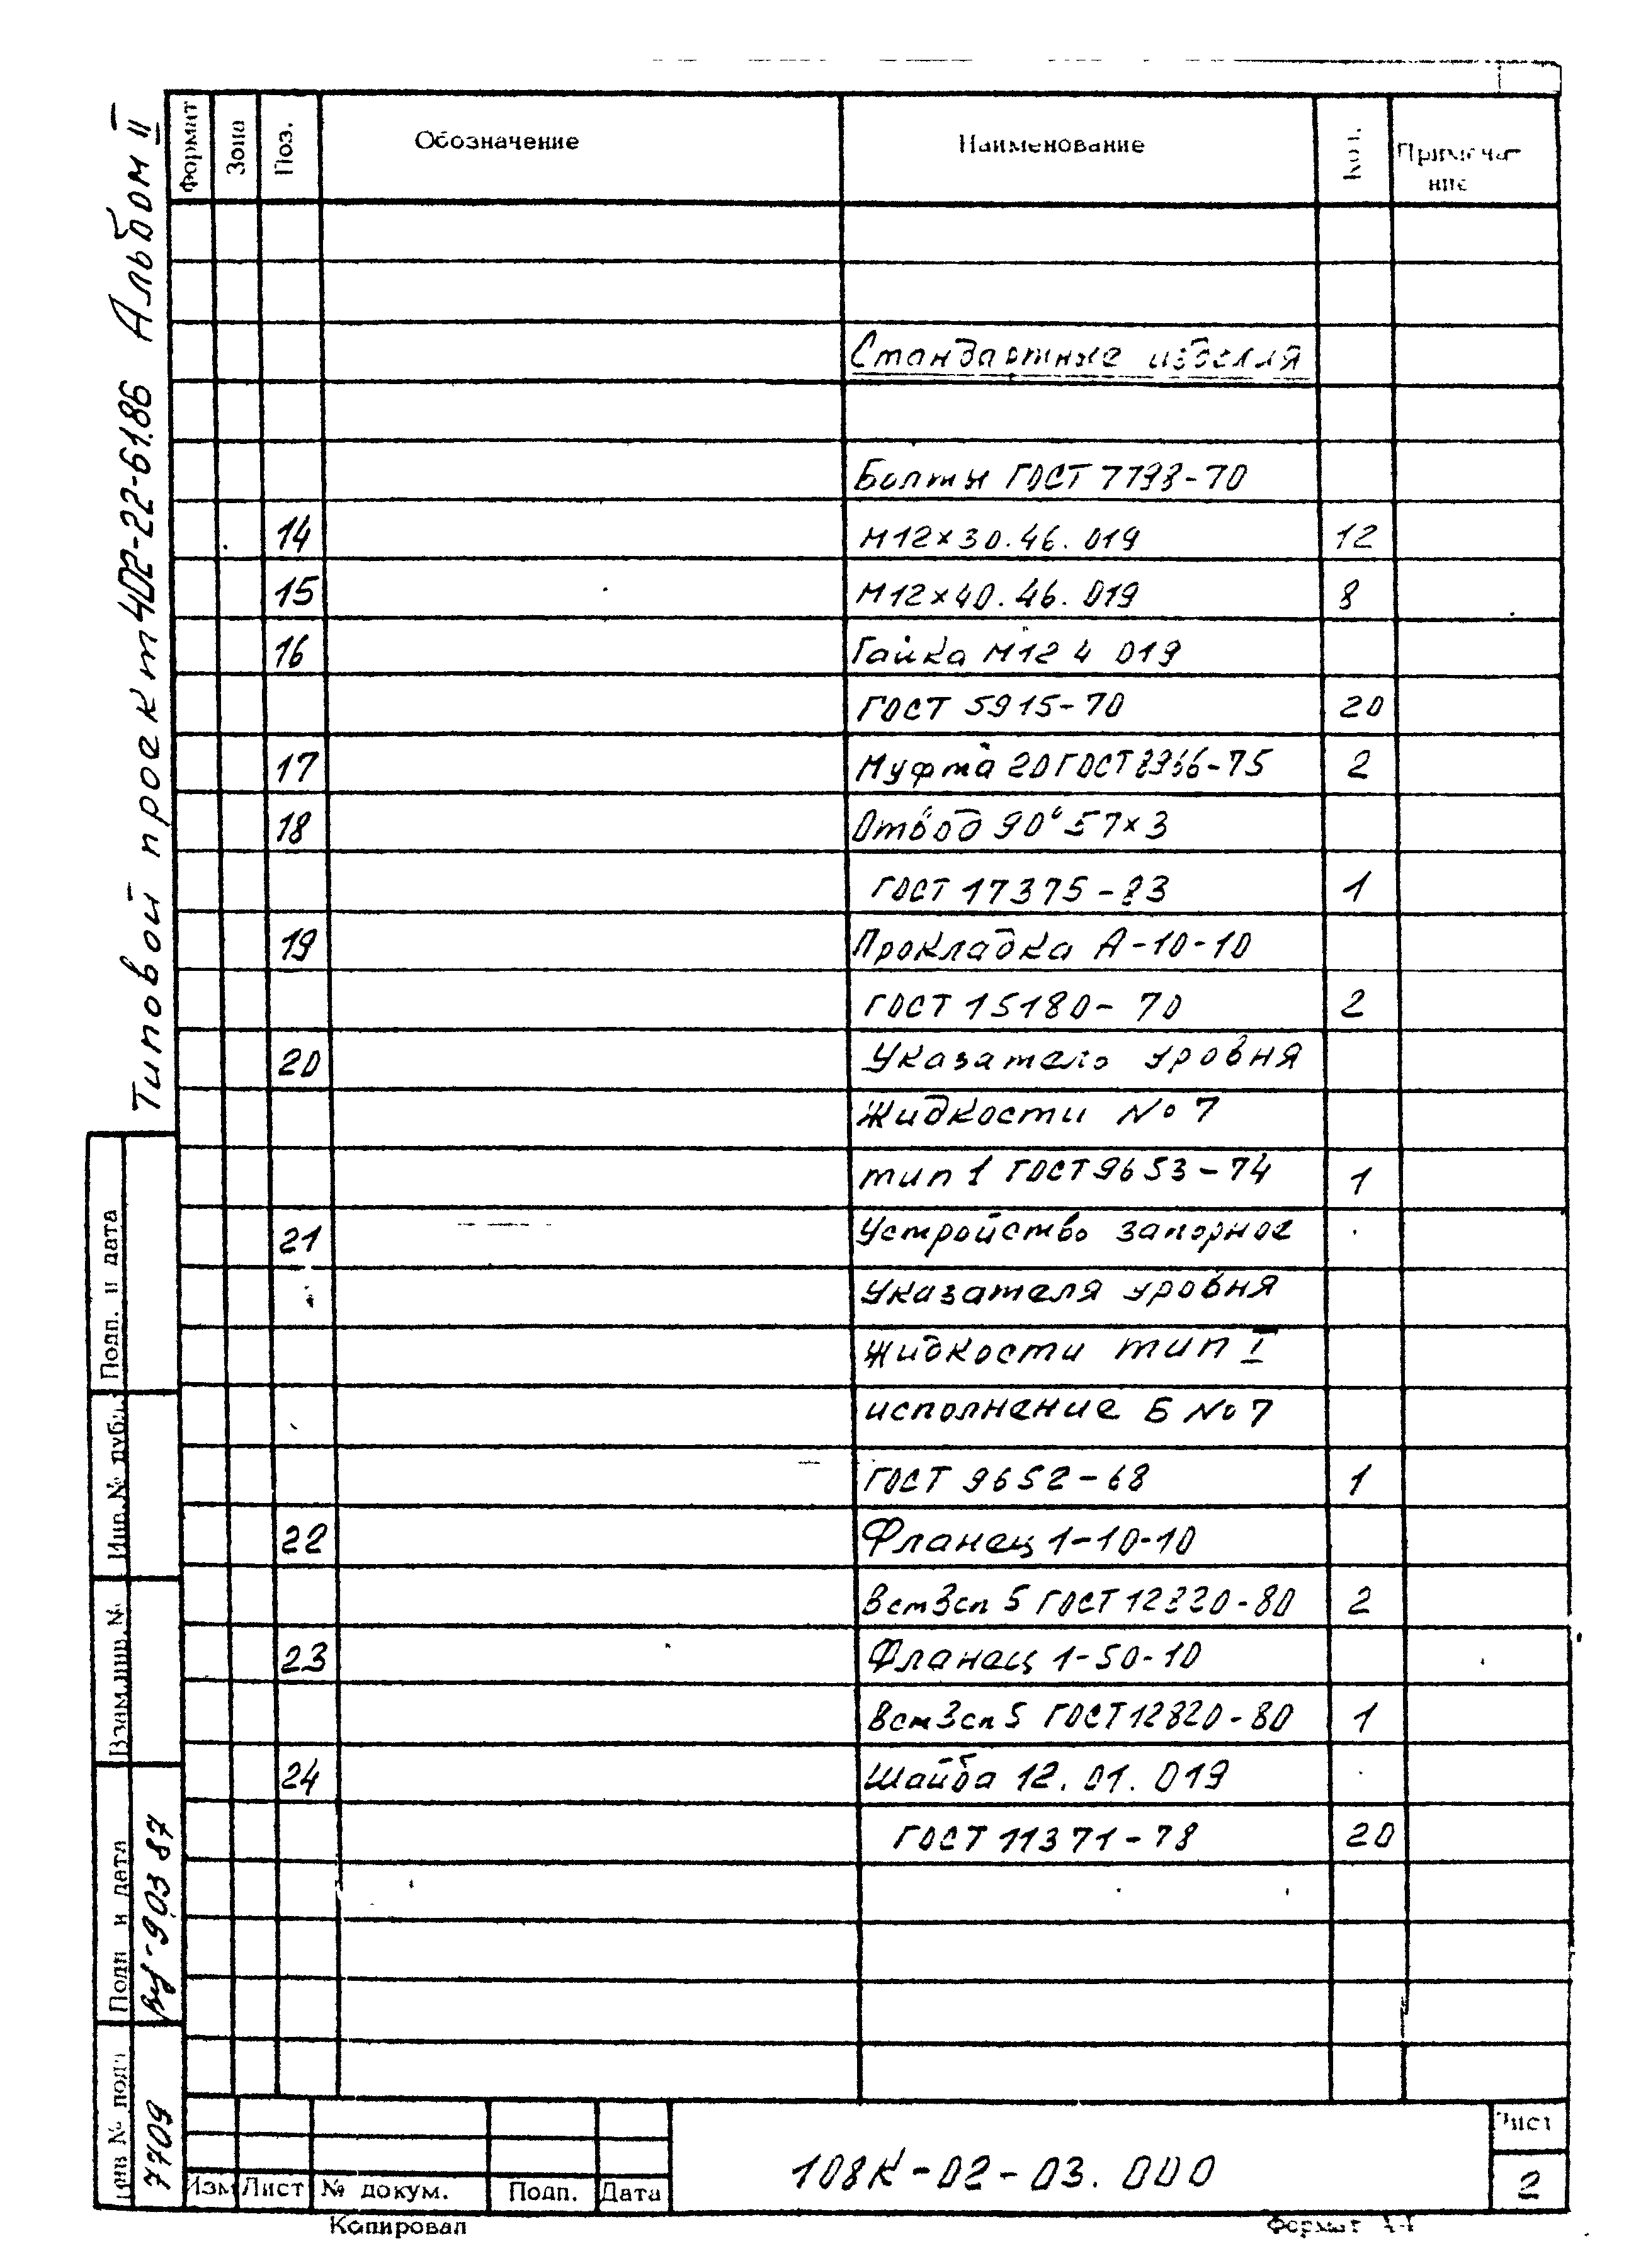 Типовой проект 402-22-61.86 Альбом II
Формат Зона Поз. Обозначение Наименование Кол. Примеча-
ние
Стандартные изделия
Болты ГОСТ 7798-70
14 М12×30.46.019 12
15 М12×40.46.019 8
16 Гайка М12 4 019
ГОСТ 5915-70 20
17 Муфта 20 ГОСТ 8966-75 2
18 Отвод 90° 57×3
ГОСТ 17375-83 1
19 Прокладка А-10-10
ГОСТ 15180-70 2
20 Указатель уровня
жидкости №7
тип 1 ГОСТ 9653-74 1
21 Устройство запорное
указателя уровня
жидкости тип I
исполнение Б №7
ГОСТ 9652-68 1
22 Фланец 1-10-10
Вст3сп 5 ГОСТ 12820-80 2
23 Фланец 1-50-10
Вст3сп 5 ГОСТ 12820-80 1
24 Шайба 12.01.019
ГОСТ 11371-78 20
Подп. и дата
Инв.№ дубл.
Взам.инв.№
Подп и дата 9.03 87
Инв № подл 7709
Изм Лист № докум. Подп. Дата
108К-02-03.000
Лист
2
Копировал
Формат А4